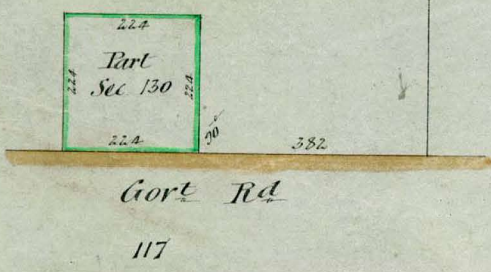 224
Part
224 Sec 130 224
224 90° 382
Govt Rd
117